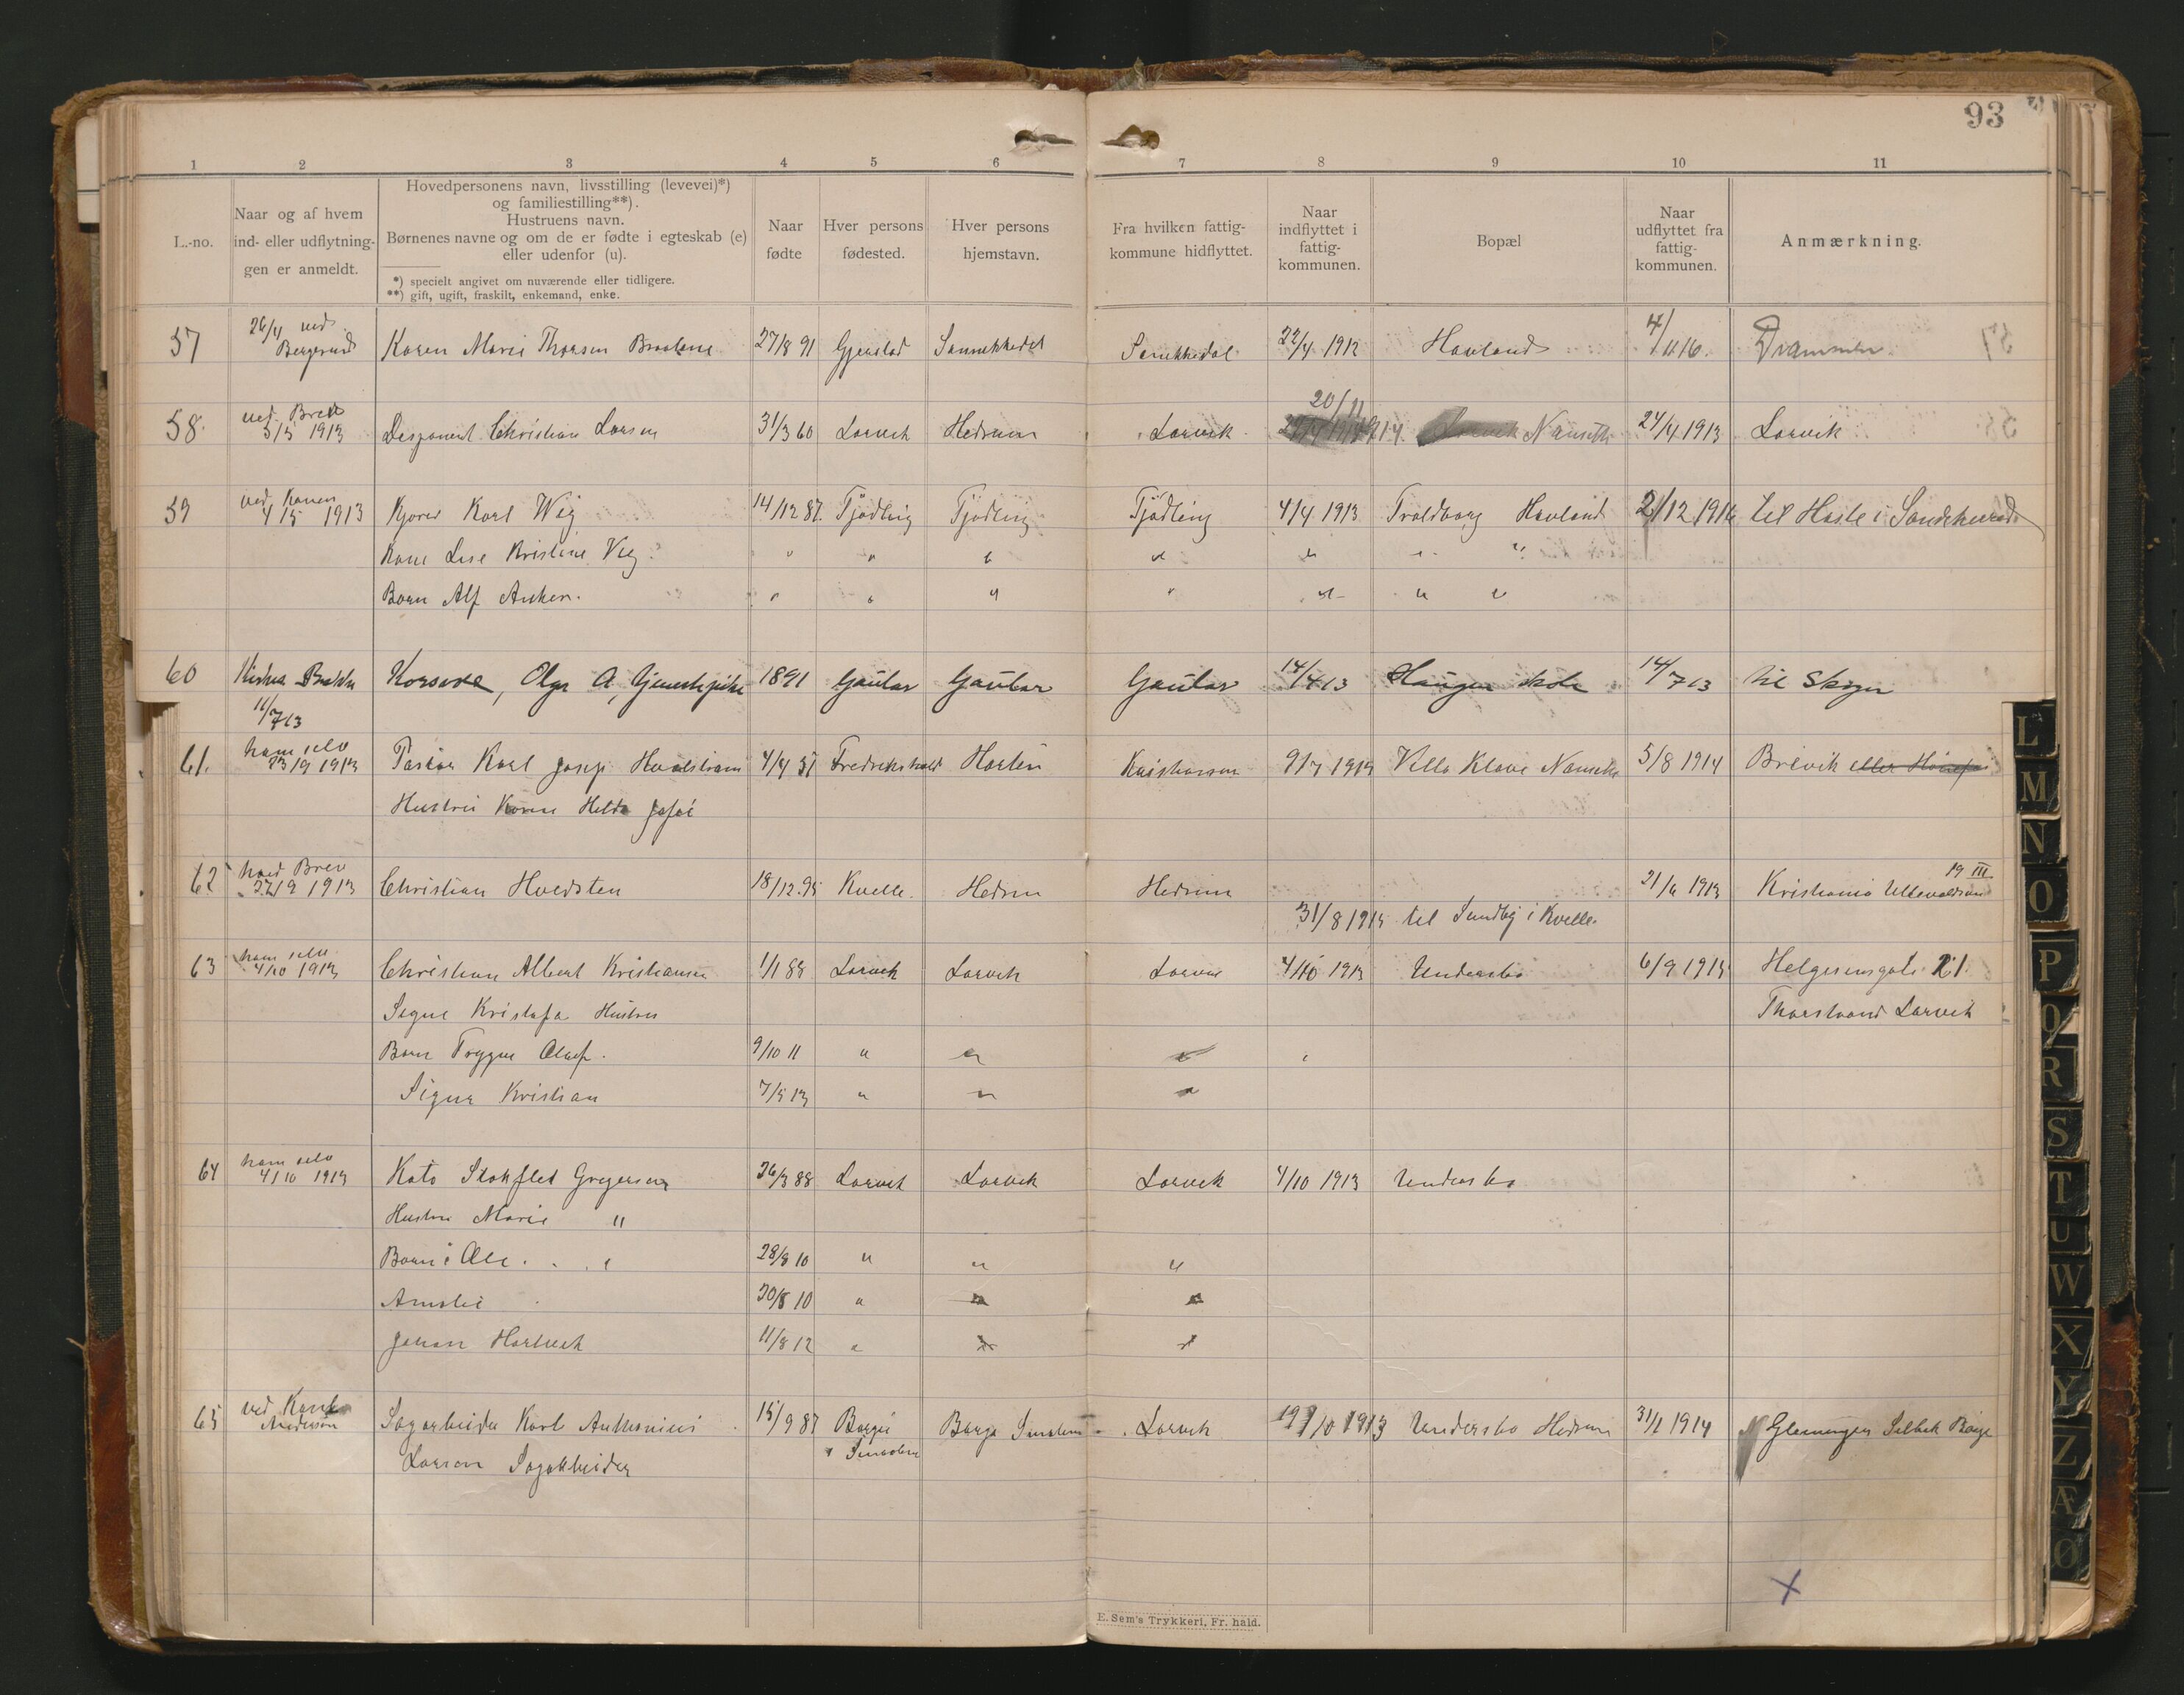 93
1 2 3 4 5 6 7 8 9 10 11
L.-no.
Naar og af hvem
ind- eller udflytnin-
gen er anmeldt.
Hovedpersonens navn, livsstilling (levevei)*)
og familiestilling**).
Hustruens navn.
Børnenes navne og om de er fødte i egteskab (e)
eller udenfor (u).
*) specielt angivet om nuværende eller tidligere.
**) gift, ugift, fraskilt, enkemand, enke.
Naar
fødte
Hver persons
fødested.
Hver persons
hjemstavn.
Fra hvilken fattig-
kommune hidflyttet.
Naar
indflyttet i
fattig-
kommunen.
Bopæl
Naar
udflyttet fra
fattig-
kommunen.
Anmærkning.
26/4 ved
57 Karen Marie Thorsen 27/8 91 Gjerstad Sannikedal 22/4 1912 Havland 4/11 16. Drammen
ved Brev 20/11
58. 5/5 1913 Disponent Christian Larsen 31/3 60 Larvik Hedrum Larvik 1914 Nansett 24/4 1913 Larvik
ved Konen
59 4/5 1913 Kjører Karl Wiig 14/12 87. Tjødling Tjødling Tjødling 4/4 1913 Troldborg Havland 2/12 1916 til Hasle i Sandeherred
Kone Lise Kristine Viig " " " " " " "
Barn Alf Anker. " " " " " " "
60 Kirkes Bakke Korsave, Olga A, Tjenestepike 1891 Gaular Gaular Gaular 14/4 13 Haugen skole 14/7 13 til Skoger
11/7 13
ham selv
61. 23/9 1913 Pastor Karl Josef 4/4 51 Fredrikshald Horten 9/7 1913 Villa Klave Nansett 5/8 1914 Brevik eller
Hustru Karen Hilda
med Brev 19 III
62 22/9 1913 Christian Hvidsten 18/12.95 Kvelle. Hedrum Hedrum 21/6 1913 Kristiania Ullevoldsvn
31/8 1915 til Sundby i Kvelle.
ham selv
63 4/10 1913 Christian Albert Kristiansen 1/1 88 Larvik Larvik Larvik 4/10 1913 Undersbo 6/9 1915 Helgesensgate 21.
Signe Kristofa Hustru Thorstrand Larvik
Barn Trygve Oluf. 9/10 11 " " " "
Signe Kristian 7/5 13 " " "
ham selv
64 4/10 1913 Kato Stokflet Gregersen 26/3 88 Larvik Larvik Larvik 4/10 1913 Undersbo
Hustru Marie "
Barn: Ole " 28/8 10 " " "
30/8 10 " " "
Johan Hartvik 11/8 12 " " "
ved
65 Andersson Sagarbeider Karl Anthonius 15/9 87 Borge Borge Smaalene Larvik 19/10 1913 Undersbo Hedrum 31/1 1914 Glemmingen Selbak Borge
Larsen Sagarbeider " Smaalene
E. Sem's Trykkeri, Fr. hald.
L
M
N
O
P
Q
R
S
T
U
W
X
Y
Z
Æ
Ø